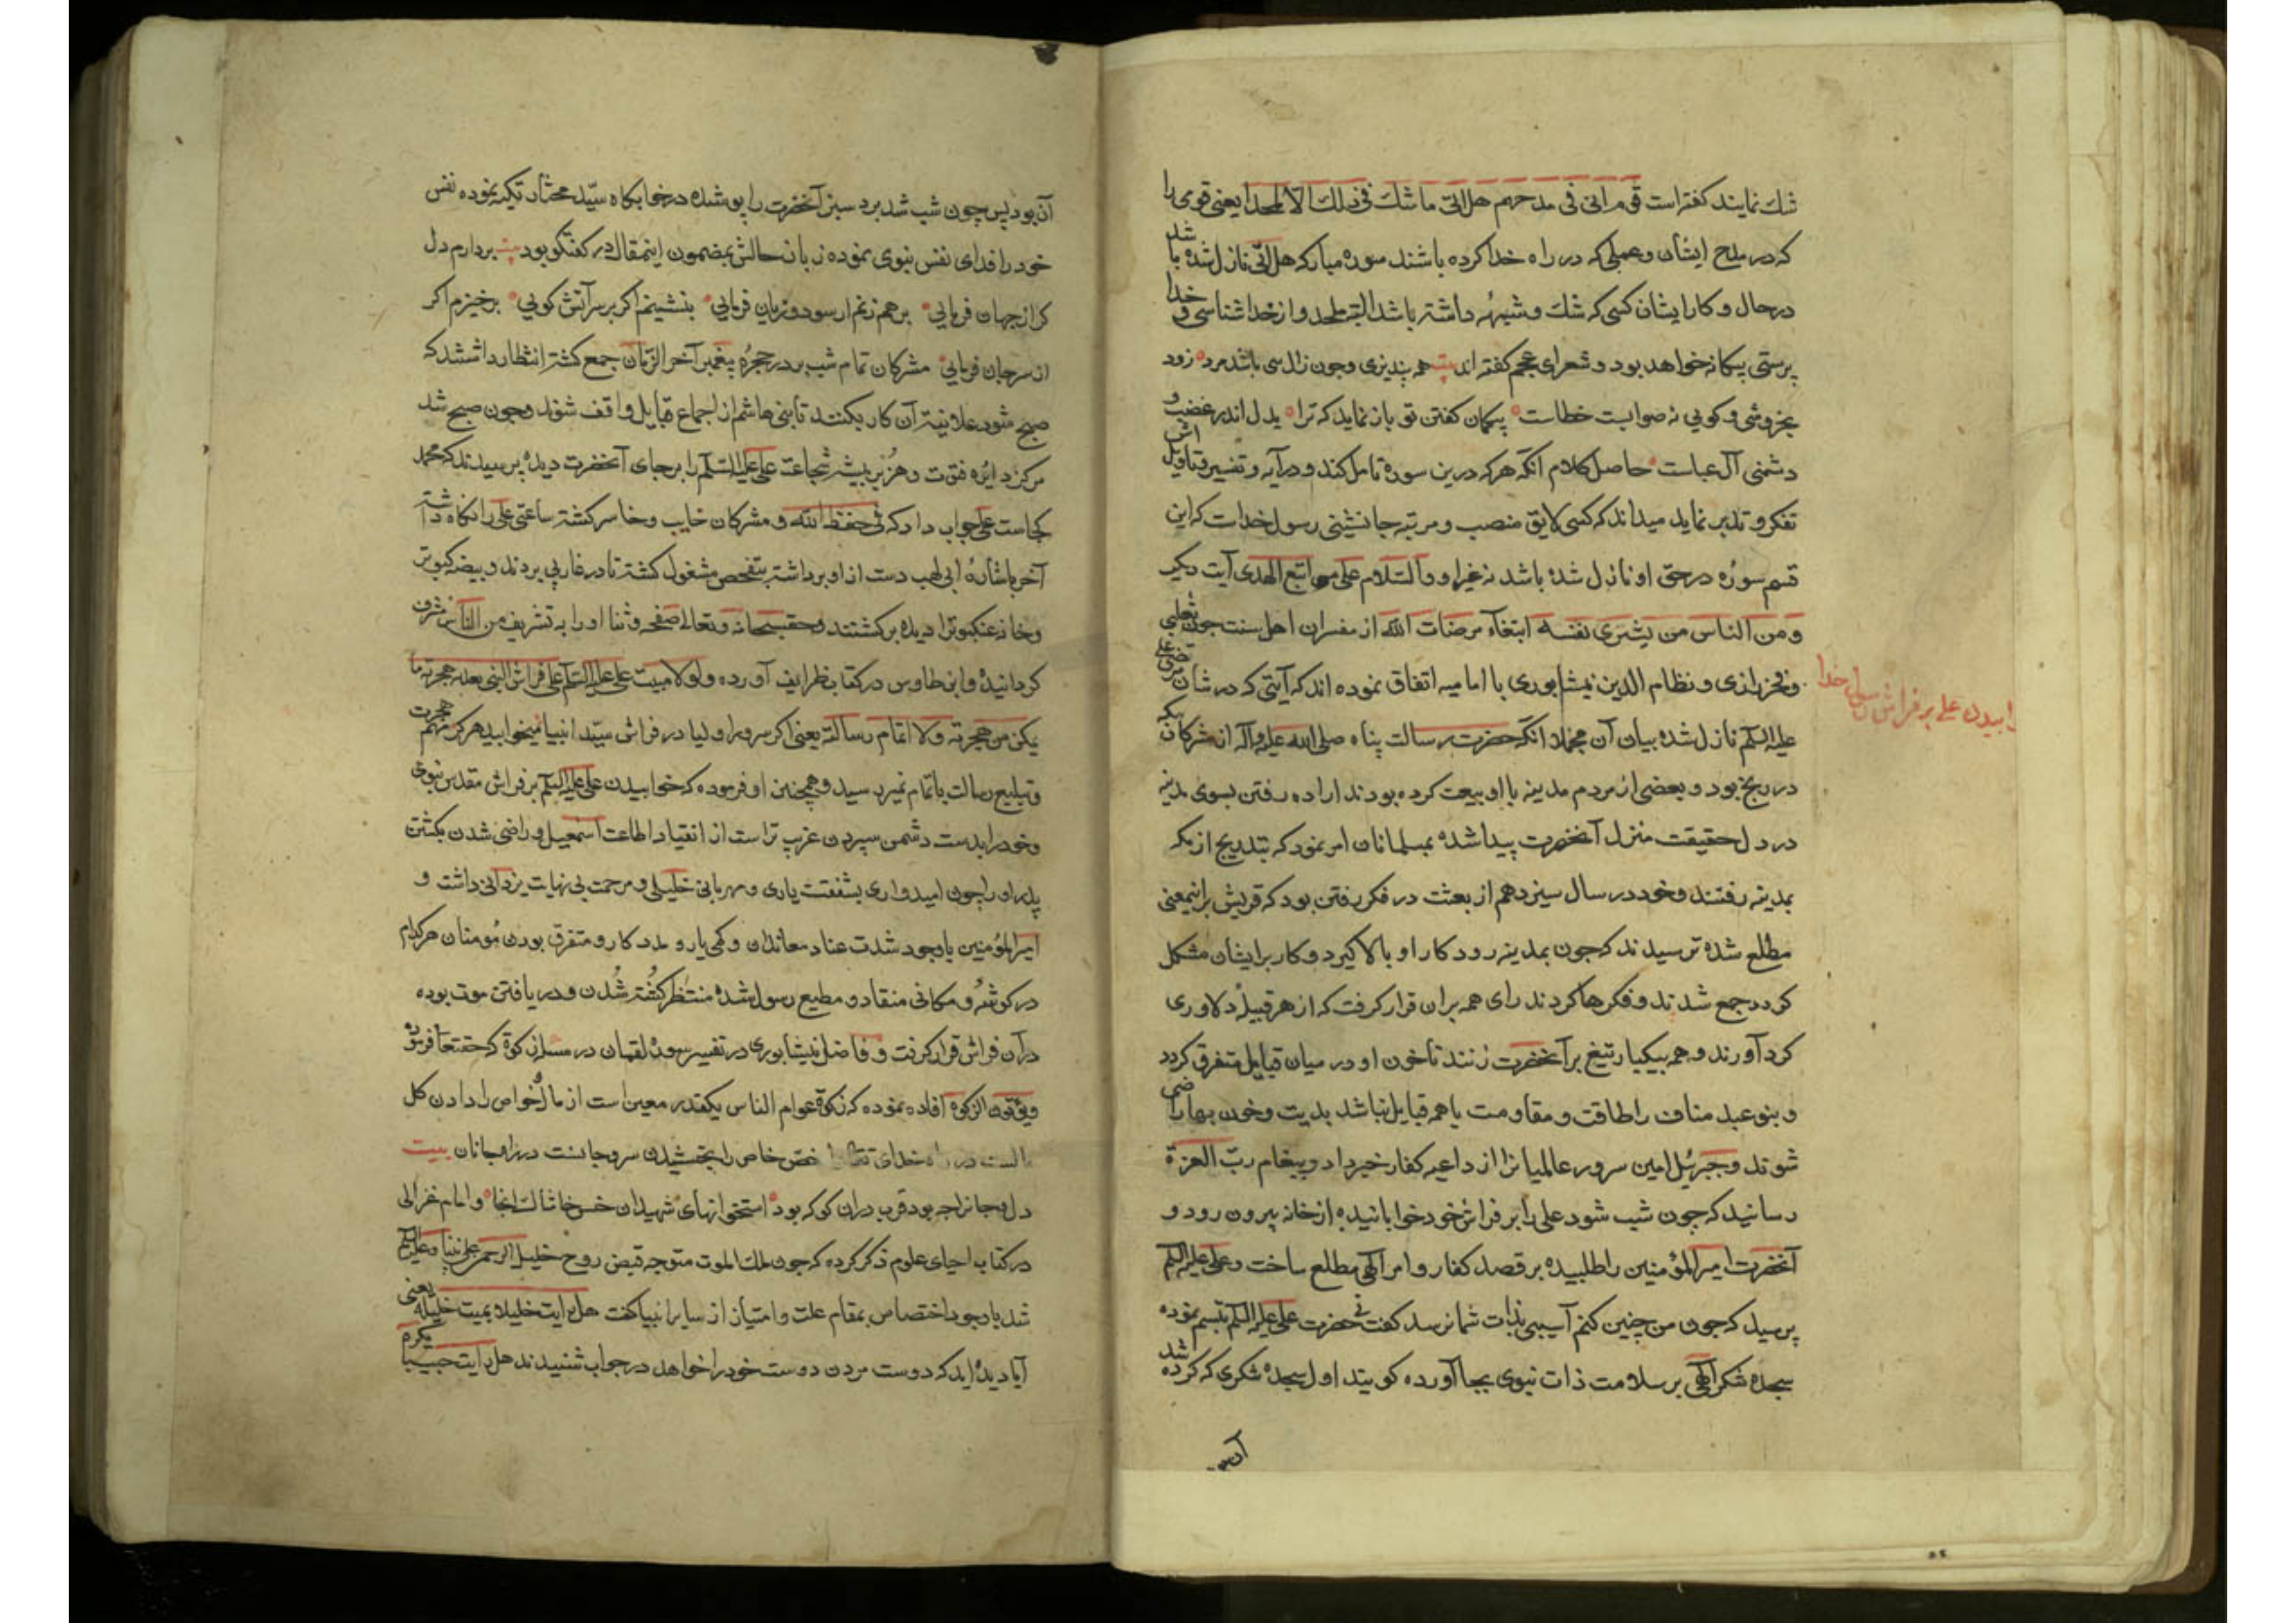 شك نمايند كفته است قوم اتى فى مدحهم هل اتى ما شك فى ذلك الا الملحد يعنى قومى را
كه در مدح ايشان و عملى كه در راه خدا كرده باشند سوره مباركه هل اتى نازل شده باشد
در حال و كار ايشان كسى كه شك و شبهه داشته باشد البته ملحد و از خدا شناسى و خدا
پرستى بيكانه خواهد بود و شعراى عجم كفته اند همه پذيرى وچون زال سى باشد مرد زود
بخروشى و كويى نه صوابست خطاست بيكمان كفتن تو باز نمايد كه ترا بدل اندر غضب و
دشمنى آل عباست حاصل كلام آنكه هركه درين سوره تامل كند و در آيه و تفسير و تاويل اش
تفكر و تدبر نمايد ميداند كه كسى لايق منصب و مرتبه جانشينى رسول خداست كه اين
قسم سوره در حق او نازل شده باشد نه غير او والسلام على من اتبع الهدى آيت ديكر
ومن الناس من يشرى نفسه ابتغاء مرضات الله از مفسران اهل سنت چون ثعلبى
و فخر رازى و نظام الدين نيشابورى با اماميه اتفاق نموده اند كه آيتى كه در شان مرتضى على
عليه السلم نازل شده بيان آن مجملا آنكه حضرت رسالت پناه صلى الله عليه وآله از مشركان مكه
در رنج بود و بعضى از مردم مدينه با او بيعت كرده بودند اراده رفتن بسوى مدينه
در دل حقيقت منزل آنحضرت پيدا شده بمسلمانان امر نمود كه بتدريج از مكه
بمدينه رفتند و خود در سال سيزدهم از بعثت در فكر رفتن بود كه قريش برانيمعنى
مطلع شده ترسيدند كه چون بمدينه رود كار او بالا كيرد و كار بر ايشان مشكل
كردد جمع شدند و فكرها كردند راى همه بران قرار كرفت كه از هر قبيله دلاورى
كرد آورند و همه بيكبار تيغ بر آنحضرت زنند تا خون او در ميان قبايل متفرق كردد
و بنو عبد مناف را طاقت و مقاومت با همه قبايل نباشد بديت و خون بها راضى
شوند و جبرئيل امين سرور عالميانرا از داعيه كفار خبر داد و پيغام رب العزة
رسانيد كه چون شب شود على را بر فراش خود خوابانيده از خانه بيرون رود و
آنحضرت امير المؤمنين را طلبيده بر قصد كفار و امر الهى مطلع ساخت و على عليه السلم
پرسيد كه چون من چنين كنم آسيبى بذات شما نرسد كفت نى حضرت على عليه السلم تبسم نموده
سجده شكر الهى بر سلامت ذات نبوى بجا آورده كويند اول سجده شكرى كه كرده شد
ابيدن على بر فراش رسول خدا
آن بود پس چون شب شد برد سبز آنحضرت را پوشيده در خوابكاه سيد مختار تكيه نموده نفس
خود را فداى نفس نبوى نموده زبان حالش بمضمون اينمقال در كفتكو بود بردارم دل
كر از جهان فرمايى برهم زنم ار سود و زيان فرمايى بنشينم اكر بر سر آتش كويى برخيزم اكر
از سر جان فرمايى مشركان تمام شب بر در حجره پيغمبر آخر الزمان جمع كشته انتظار داشتند كه
صبح شود علانيه آن كار بكنند تا بنى هاشم از اجماع قبايل واقف شوند و چون صبح شد
مركز دايره فتوت و هزبر بيشه شجاعت على عليه السلم را بر جاى آنحضرت ديده پرسيدند كه محمد
كجاست على جواب داد كه فى حفظ الله و مشركان خايب و خاسر كشته ساعتى على را نكاه داشته
آخر باشاره ابى لهب دست از او برداشته بتفحص مشغول كشته تا در غار پى بردند و بيضه كبوتر
و خانه عنكبوترا ديده بركشتند و حقسبحانه وتعالى و ثنا او را به تشريف من الناس مشرف
كردانيده و ابن طاوس در كتاب ظرايف آورده ولولا مبيت على عليه السلم على فراش النبى بعد هجرته ما
يكن من هجرته ولا اتمام رسالته يعنى اكر سرور اوليا در فراش سيد انبيا نميخوابيد هركز مهم هجرت
و تبليغ رسالت باتمام نميرسيد و همچنين او فرموده كه خوابيدن على عليه السلم بر فراش مقدس نبوى
و خود را بدست دشمن سپردن غريب تر است از انقياد اطاعت اسمعيل و راضى شدن بكشتن
پدر او را چون اميدوارى بشفقت يارى و مهربانى خليلى و مرحمت بى نهايت يزدانى داشت و
امير المؤمنين باوجود شدت عناد معاندان و كمى يار و مددكار و متفرق بودن مؤمنان هركدام
در كوشه و مكانى منقاد و مطيع رسول شده منتظر كشته شدن و دريافتن موت بوده
در آن فراش قرار كرفت و فاضل نيشابورى در تفسير سوره لقمان در مسئله زكوة كه حقتعا فرموده
ويؤتون الزكوة افاده نموده كه زكوة عوام الناس يكقدر معين است از مال و خواص را دادن كل
مالست در راه خداى خاص را بخشيدن سر و جانست در راه جانان بيت
دل و جانرا چه بود قرب دران كو كه بود استخوانهاى شهيدان خس و خاشاك آنجا و امام غزالى
در كتاب احياى علوم ذكر كرده كه چون ملك الموت متوجه قبض روح خليل الرحمن على نبينا وعليه السلم
شد باوجود اختصاص بمقام خلت و امتياز از ساير انبيا كفت هل رايت خليلا يميت خليله يعنى
آيا ديده ايد كه دوست مردن دوست خود را خواهد در جواب شنيدند هل رايت حبيبا يكره